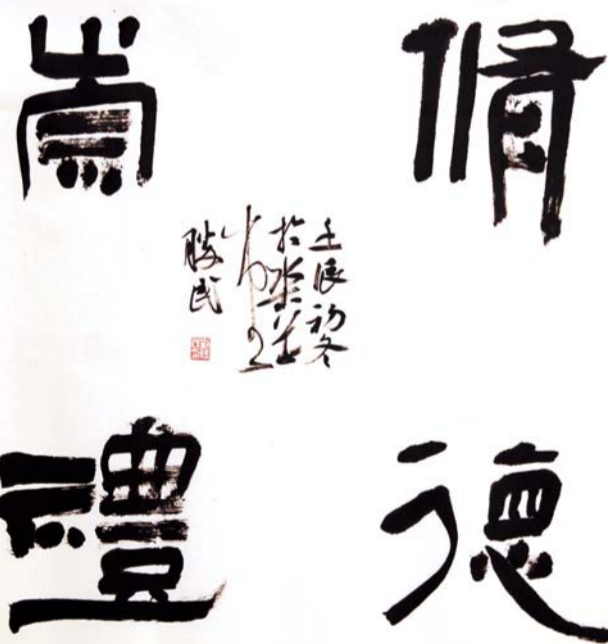 脩德
崇禮
壬辰初冬
於
勝民